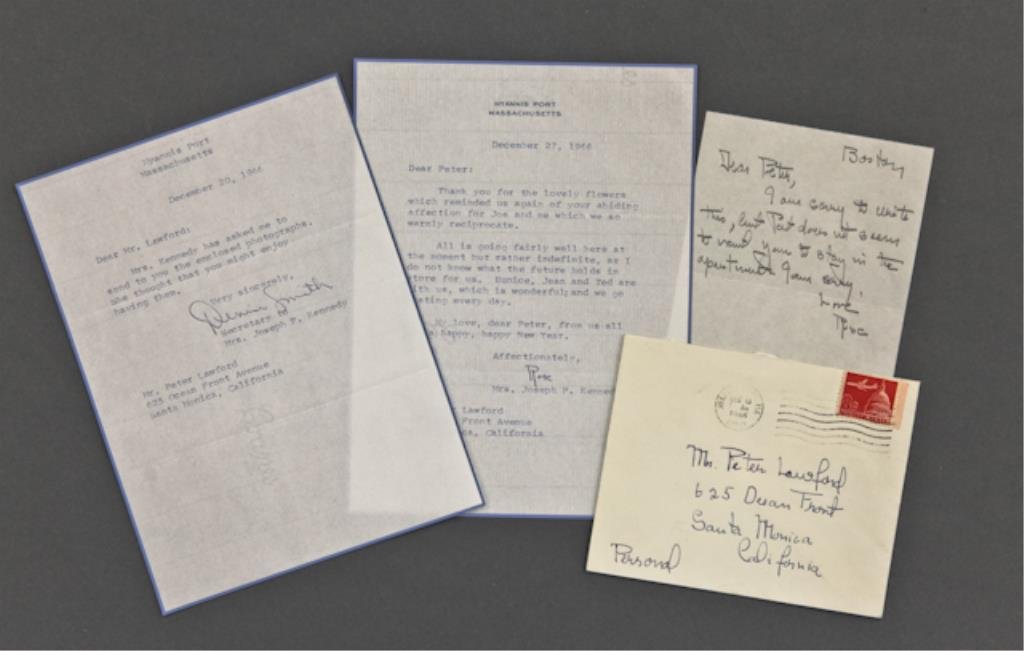 Hyannis Port
Massachusetts
December 20, 1966
Dear Mr. Lawford:
Mrs. Kennedy has asked me to
send to you the enclosed photographs.
She thought that you might enjoy
having them.
Very sincerely,
Smith
Secretary to
Mrs. Joseph P. Kennedy
Mr. Peter Lawford
625 Ocean Front Avenue
Santa Monica, California
HYANNIS PORT
MASSACHUSETTS
December 27, 1966
Dear Peter:
Thank you for the lovely flowers
which reminded us again of your abiding
affection for Joe and me which we so
warmly reciprocate.
All is going fairly well here at
the moment but rather indefinite, as I
do not know what the future holds in
store for us. Eunice, Jean and Ted are
with us, which is wonderful; and we go
ating every day.
My love, dear Peter, from us all
happy, happy New Year.
Affectionately,
Rose
Mrs. Joseph P. Kennedy
Lawford
Front Avenue
ca, California
Boston
Dear Peter,
I am sorry to write
this, but Pat does not seem
to want you to stay in the
apartment. I am sorry.
Love
Rose
Mr. Peter Lawford
625 Ocean Front
Santa Monica
California
Personal